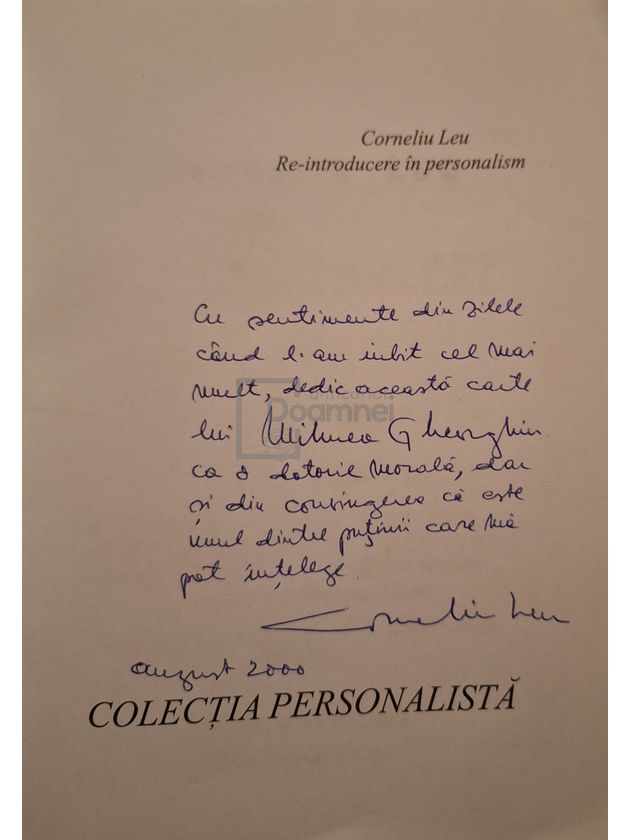 Corneliu Leu
Re-introducere în personalism
Cu sentimente din zilele
când l-am iubit cel mai
mult, dedic această carte
lui Mihnea Gheorghiu
ca o datorie morală, dar
și din convingerea că este
unul dintre puținii care mă
pot înțelege.
Corneliu Leu
august 2000
COLECȚIA PERSONALISTĂ
anticariat
Doamnei